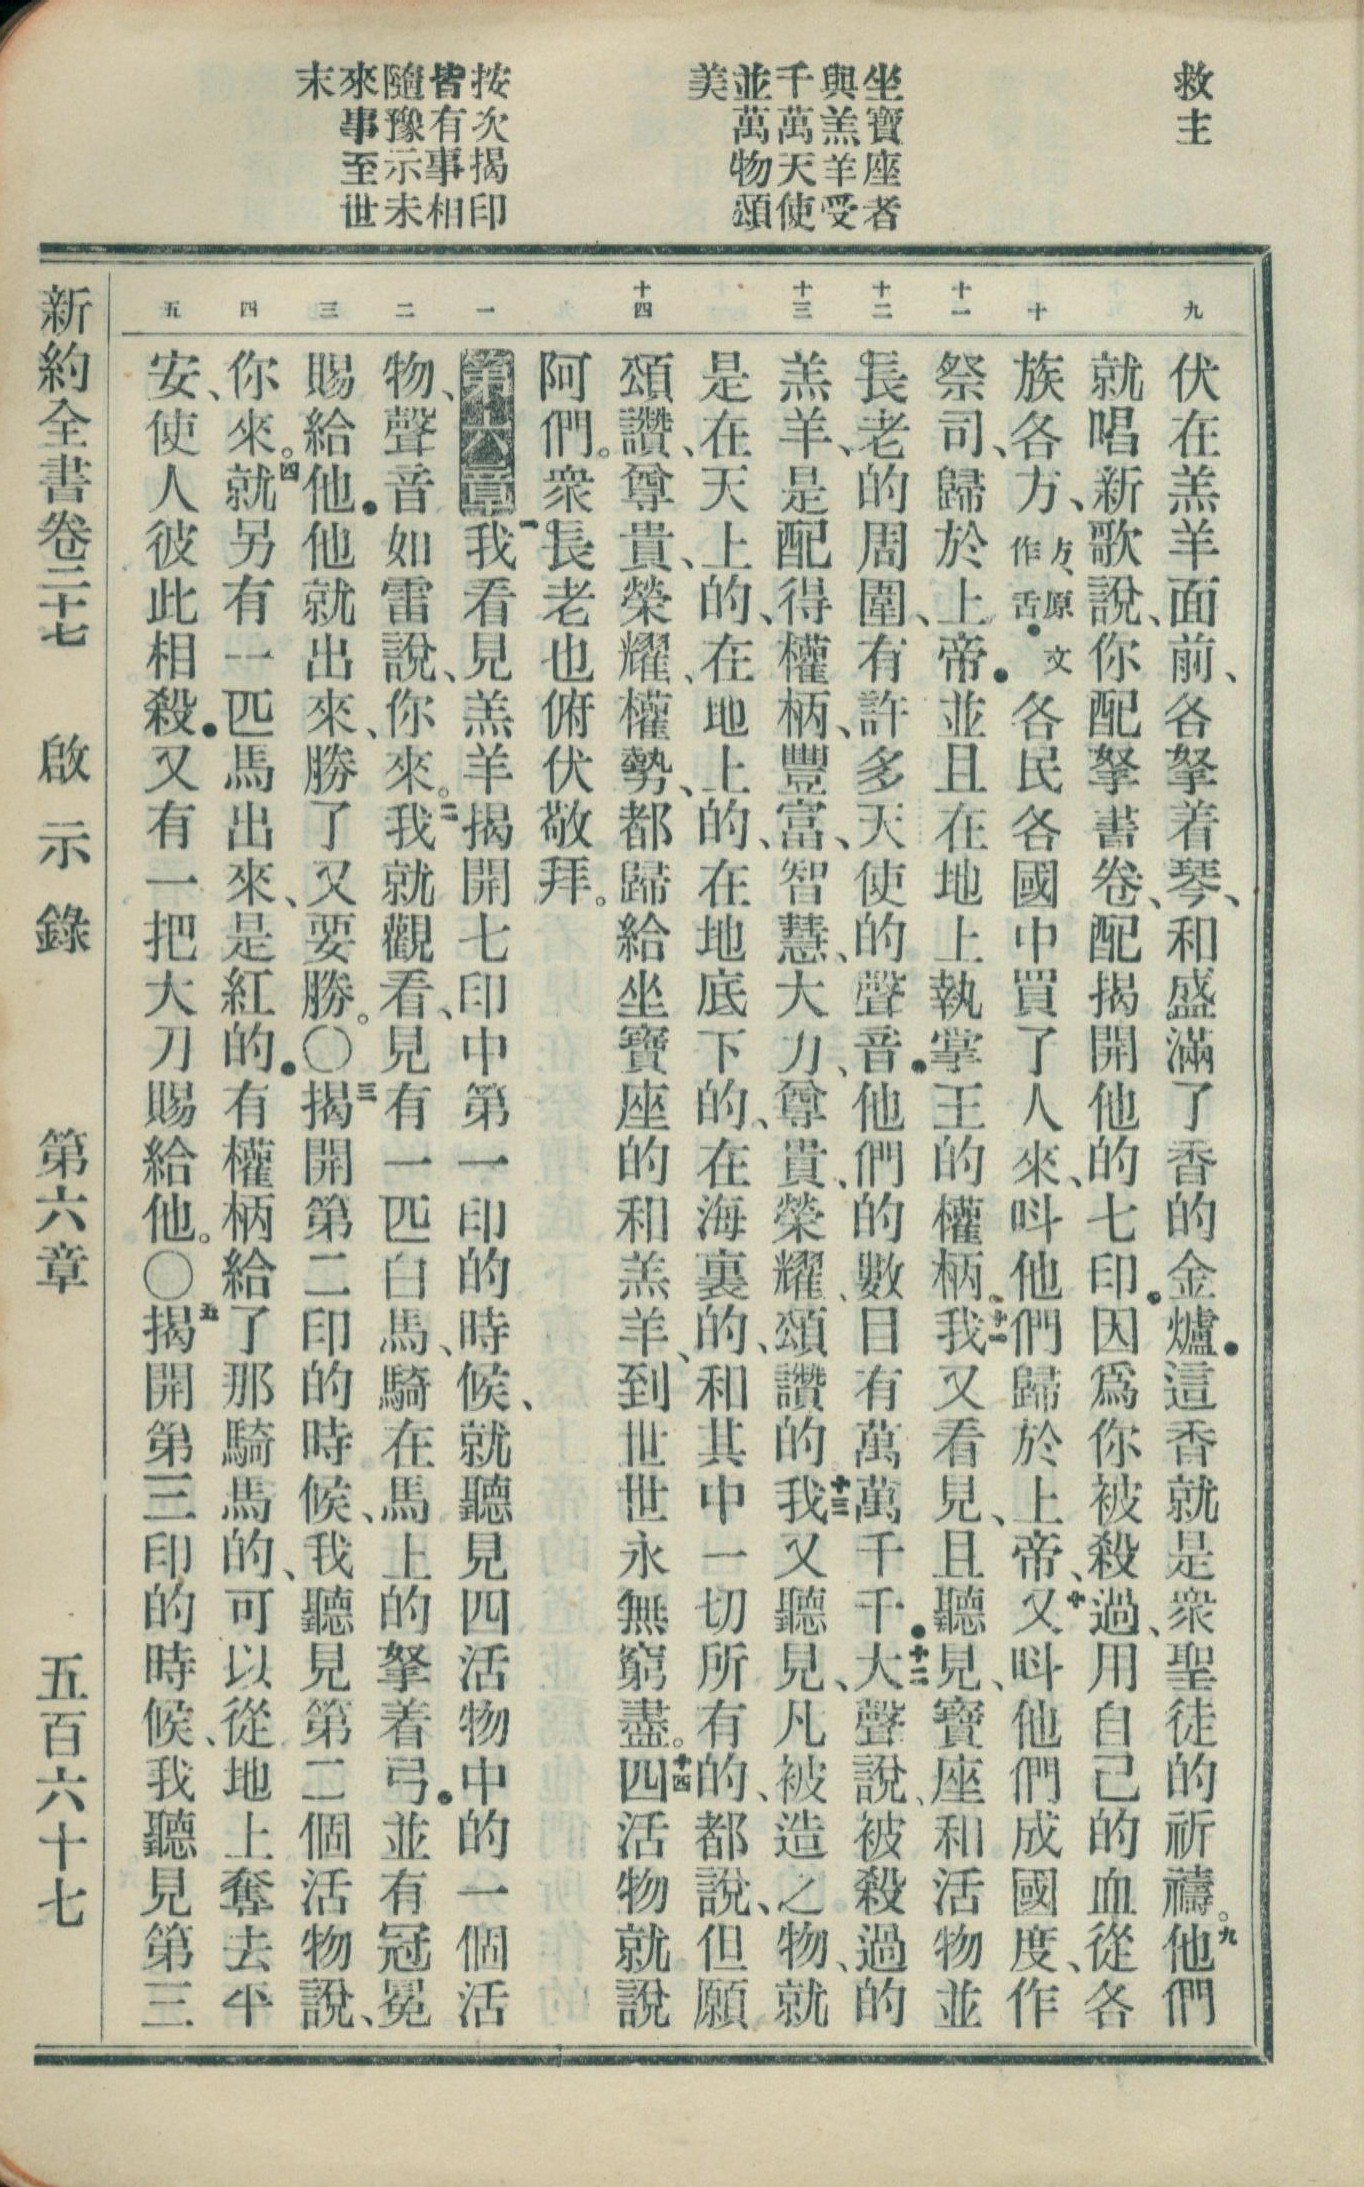 救主
坐寶座者
與羔羊受
千萬天使
並萬物頌
美
按次揭印
皆有事相
隨豫示未
來事至世
末
九
十
十一
十二
十三
十四
一
二
三
四
五
伏在羔羊面前、各拏着琴、和盛滿了香的金爐•這香就是衆聖徒的祈禱。九他們
就唱新歌說、你配拏書卷、配揭開他的七印•因爲你被殺過、用自己的血從各
族各方、方、原文作舌•各民各國中買了人來、呌他們歸於上帝、十又呌他們成國度、作
祭司、歸於上帝•並且在地上執掌王的權柄。十一我又看見、且聽見、寶座和活物並
長老的周圍、有許多天使的聲音•他們的數目有萬萬千千•十二大聲說、被殺過的
羔羊、是配得權柄、豐富、智慧、大力、尊貴、榮耀、頌讚的十三我又聽見、凡被造之物、就
是在天上的、在地上的、在地底下的、在海裏的、和其中一切所有的、都說、但願
頌讚、尊貴、榮耀、權勢、都歸給坐寶座的和羔羊、到世世永無窮盡。十四四活物就說
阿們。衆長老也俯伏敬拜。
第六章一我看見羔羊揭開七印中第一印的時候、就聽見四活物中的一個活
物、聲音如雷說、你來。二我就觀看、見有一匹白馬、騎在馬上的拏着弓•並有冠冕
賜給他•他就出來、勝了又要勝。○三揭開第二印的時候、我聽見第二個活物說、
你來。四就另有一匹馬出來、是紅的•有權柄給了那騎馬的、可以從地上奪去平
安、使人彼此相殺•又有一把大刀賜給他。○五揭開第三印的時候、我聽見第三
新約全書卷二十七 啟示錄 第六章 五百六十七